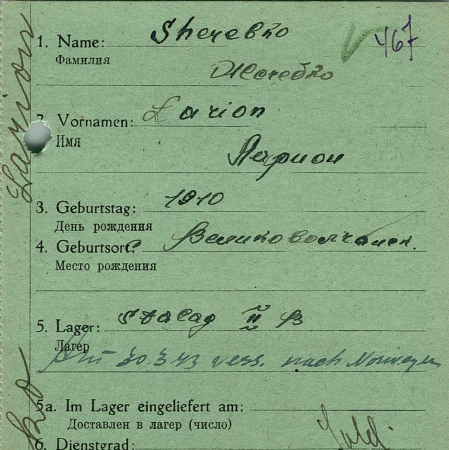 467
1. Name: Sherebko
Фамилия
Жеребко
2. Vornamen: Larion
Имя
Ларион
3. Geburtstag: 1910
День рождения
4. Geburtsort:
Место рождения
5. Lager: Stalag II B
Лагер
Am 30.3.43 vers. nach Norwegen
5a. Im Lager eingeliefert am:
Доставлен в лагер (число)
6. Dienstgrad: Sold.
Larion
ko